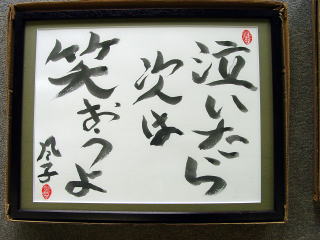 泣いたら
次は
笑おうよ
風子